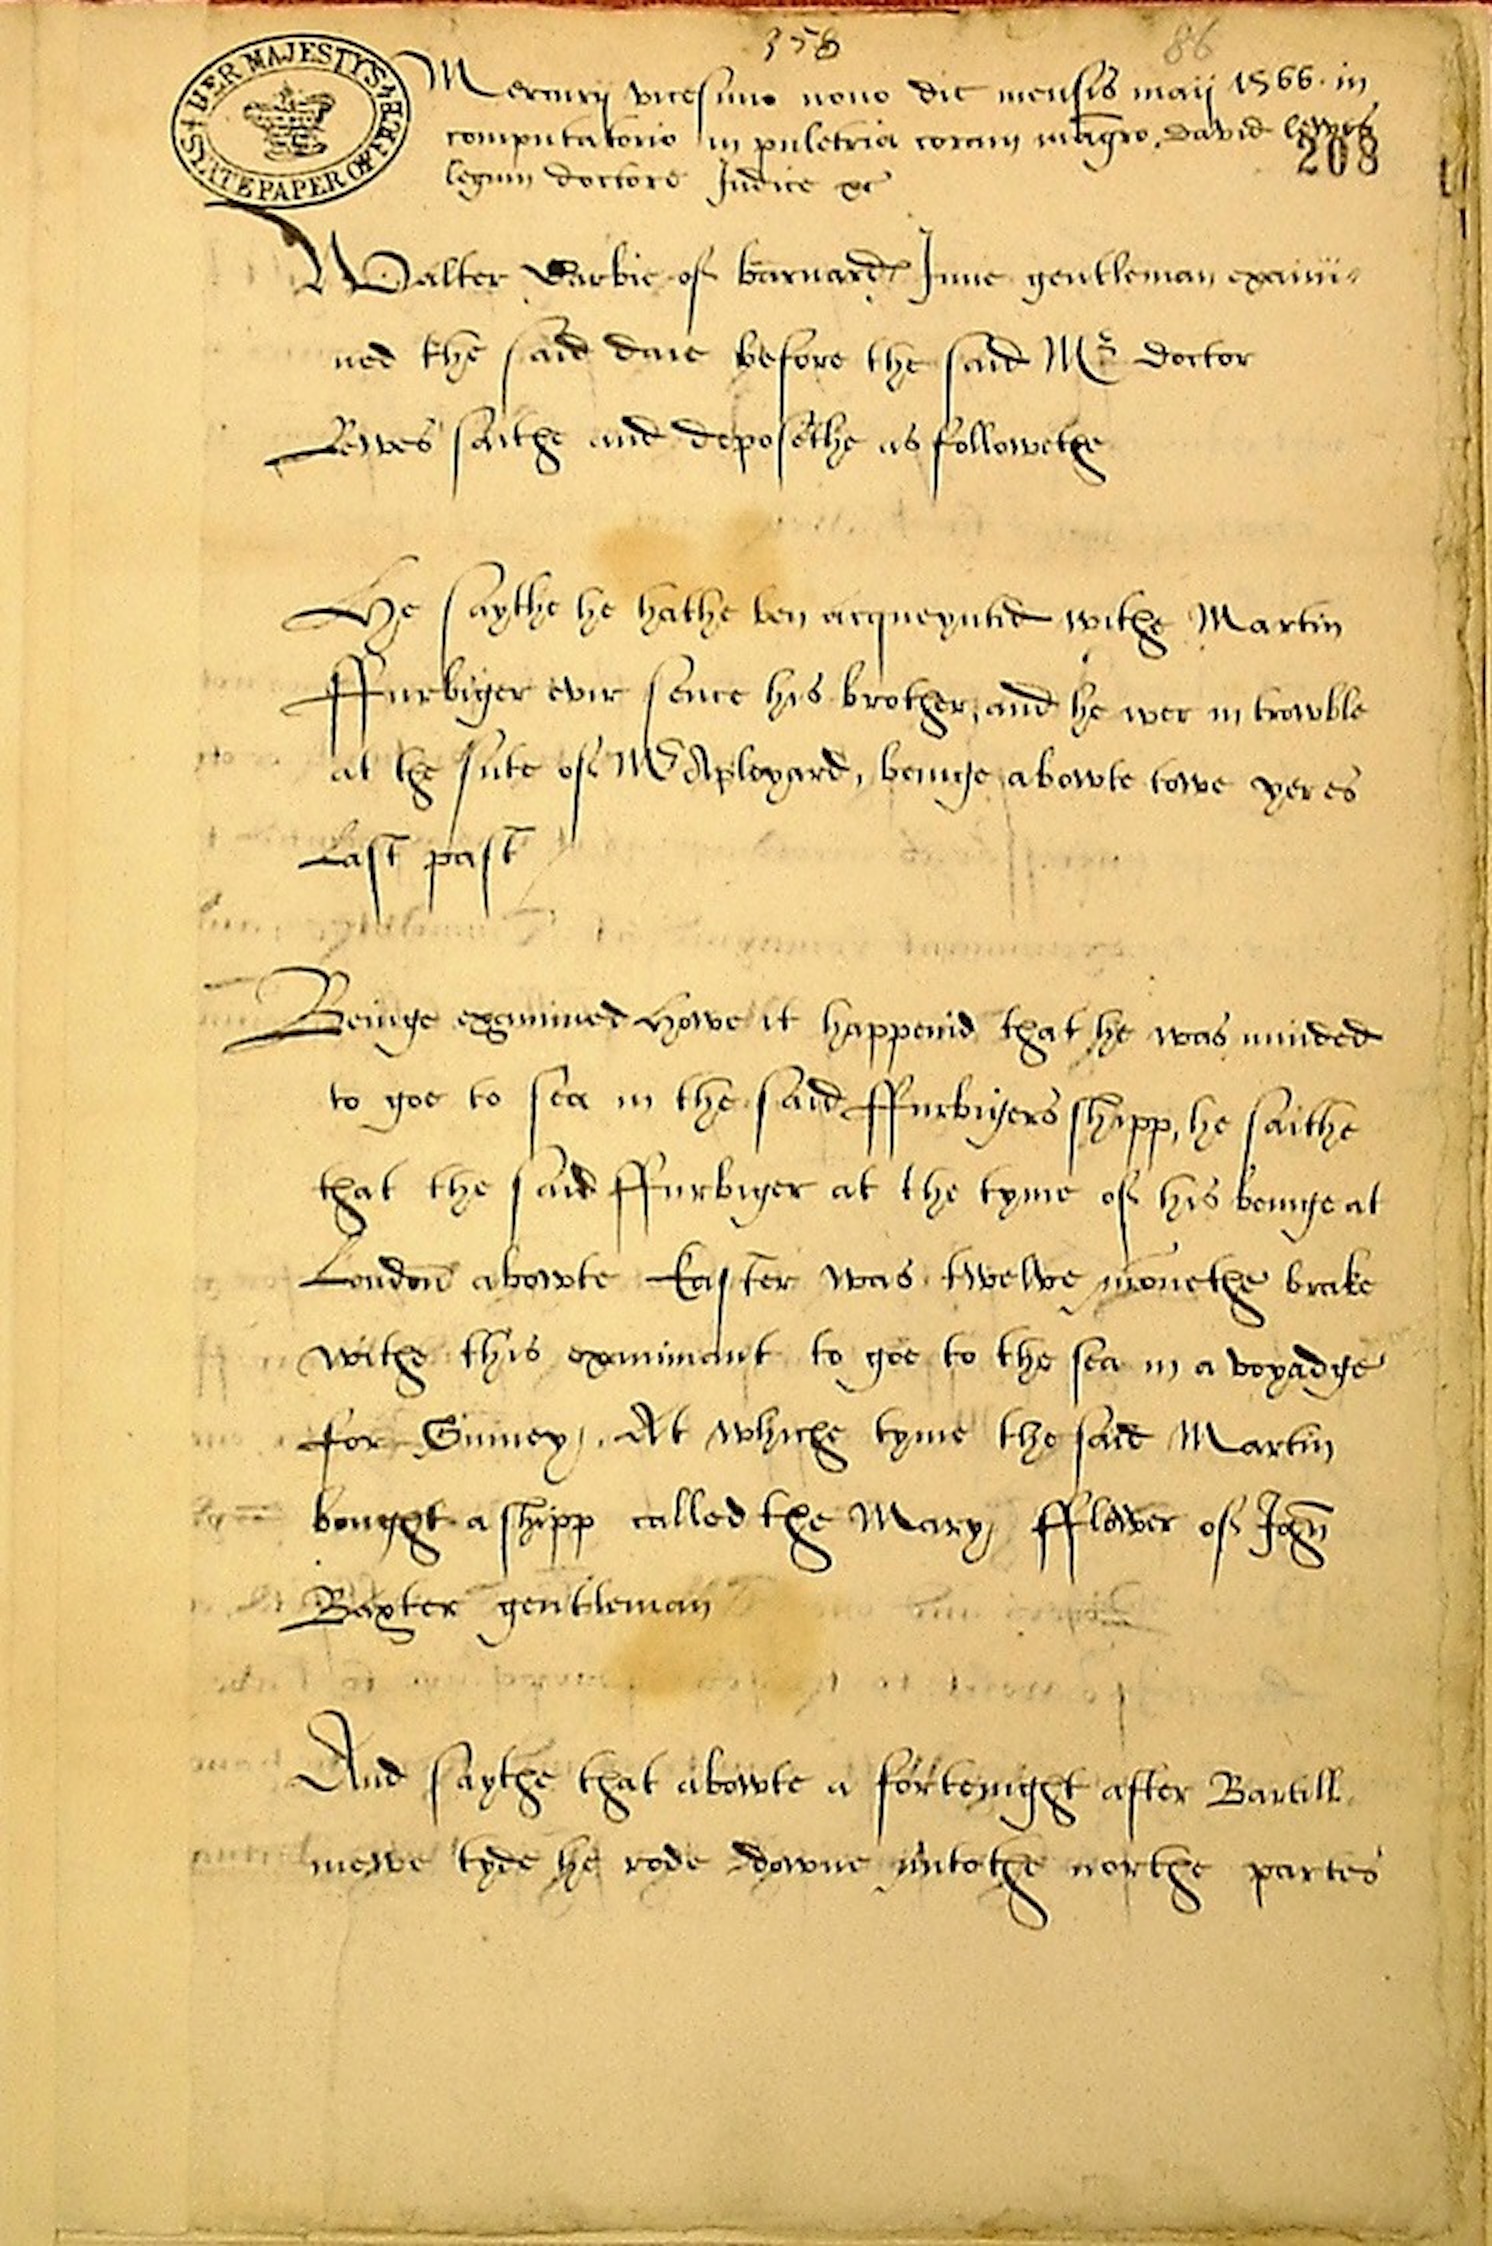 358 86
HER MAJESTY'S STATE PAPER OFFICE
Mercurij vicesimo nono die mensis maij 1566. in
computatorio in puletria coram magro. David Lewes
208
legum doctore Judice &c
Walter Darbie of Barnard Inne gentleman exami-
ned the said daie before the said Mr Doctor
Lewes saithe and deposethe as followethe
He saythe he hathe ben acqueyntid withe Martin
ffurbiger evir sence his brother, and he wer in trowble
at the sute of Mr Apleyard, beinge abowte towe yeres
Last past
Beinge examined howe it happenid that he was minded
to goe to sea in the said ffurbigers shipp, he saithe
that the said ffurbiger at the tyme of his beinge at
London abowte Easter was twelve monethe brake
withe this examinant to goe to the sea in a voyadge
for Guiney. At whiche tyme the said Martin
bought a shipp called the Mary fflower of John
Baxter gentleman
And saythe that abowte a fortenight after Bartill
mewe tyde he rode downe into the northe partes